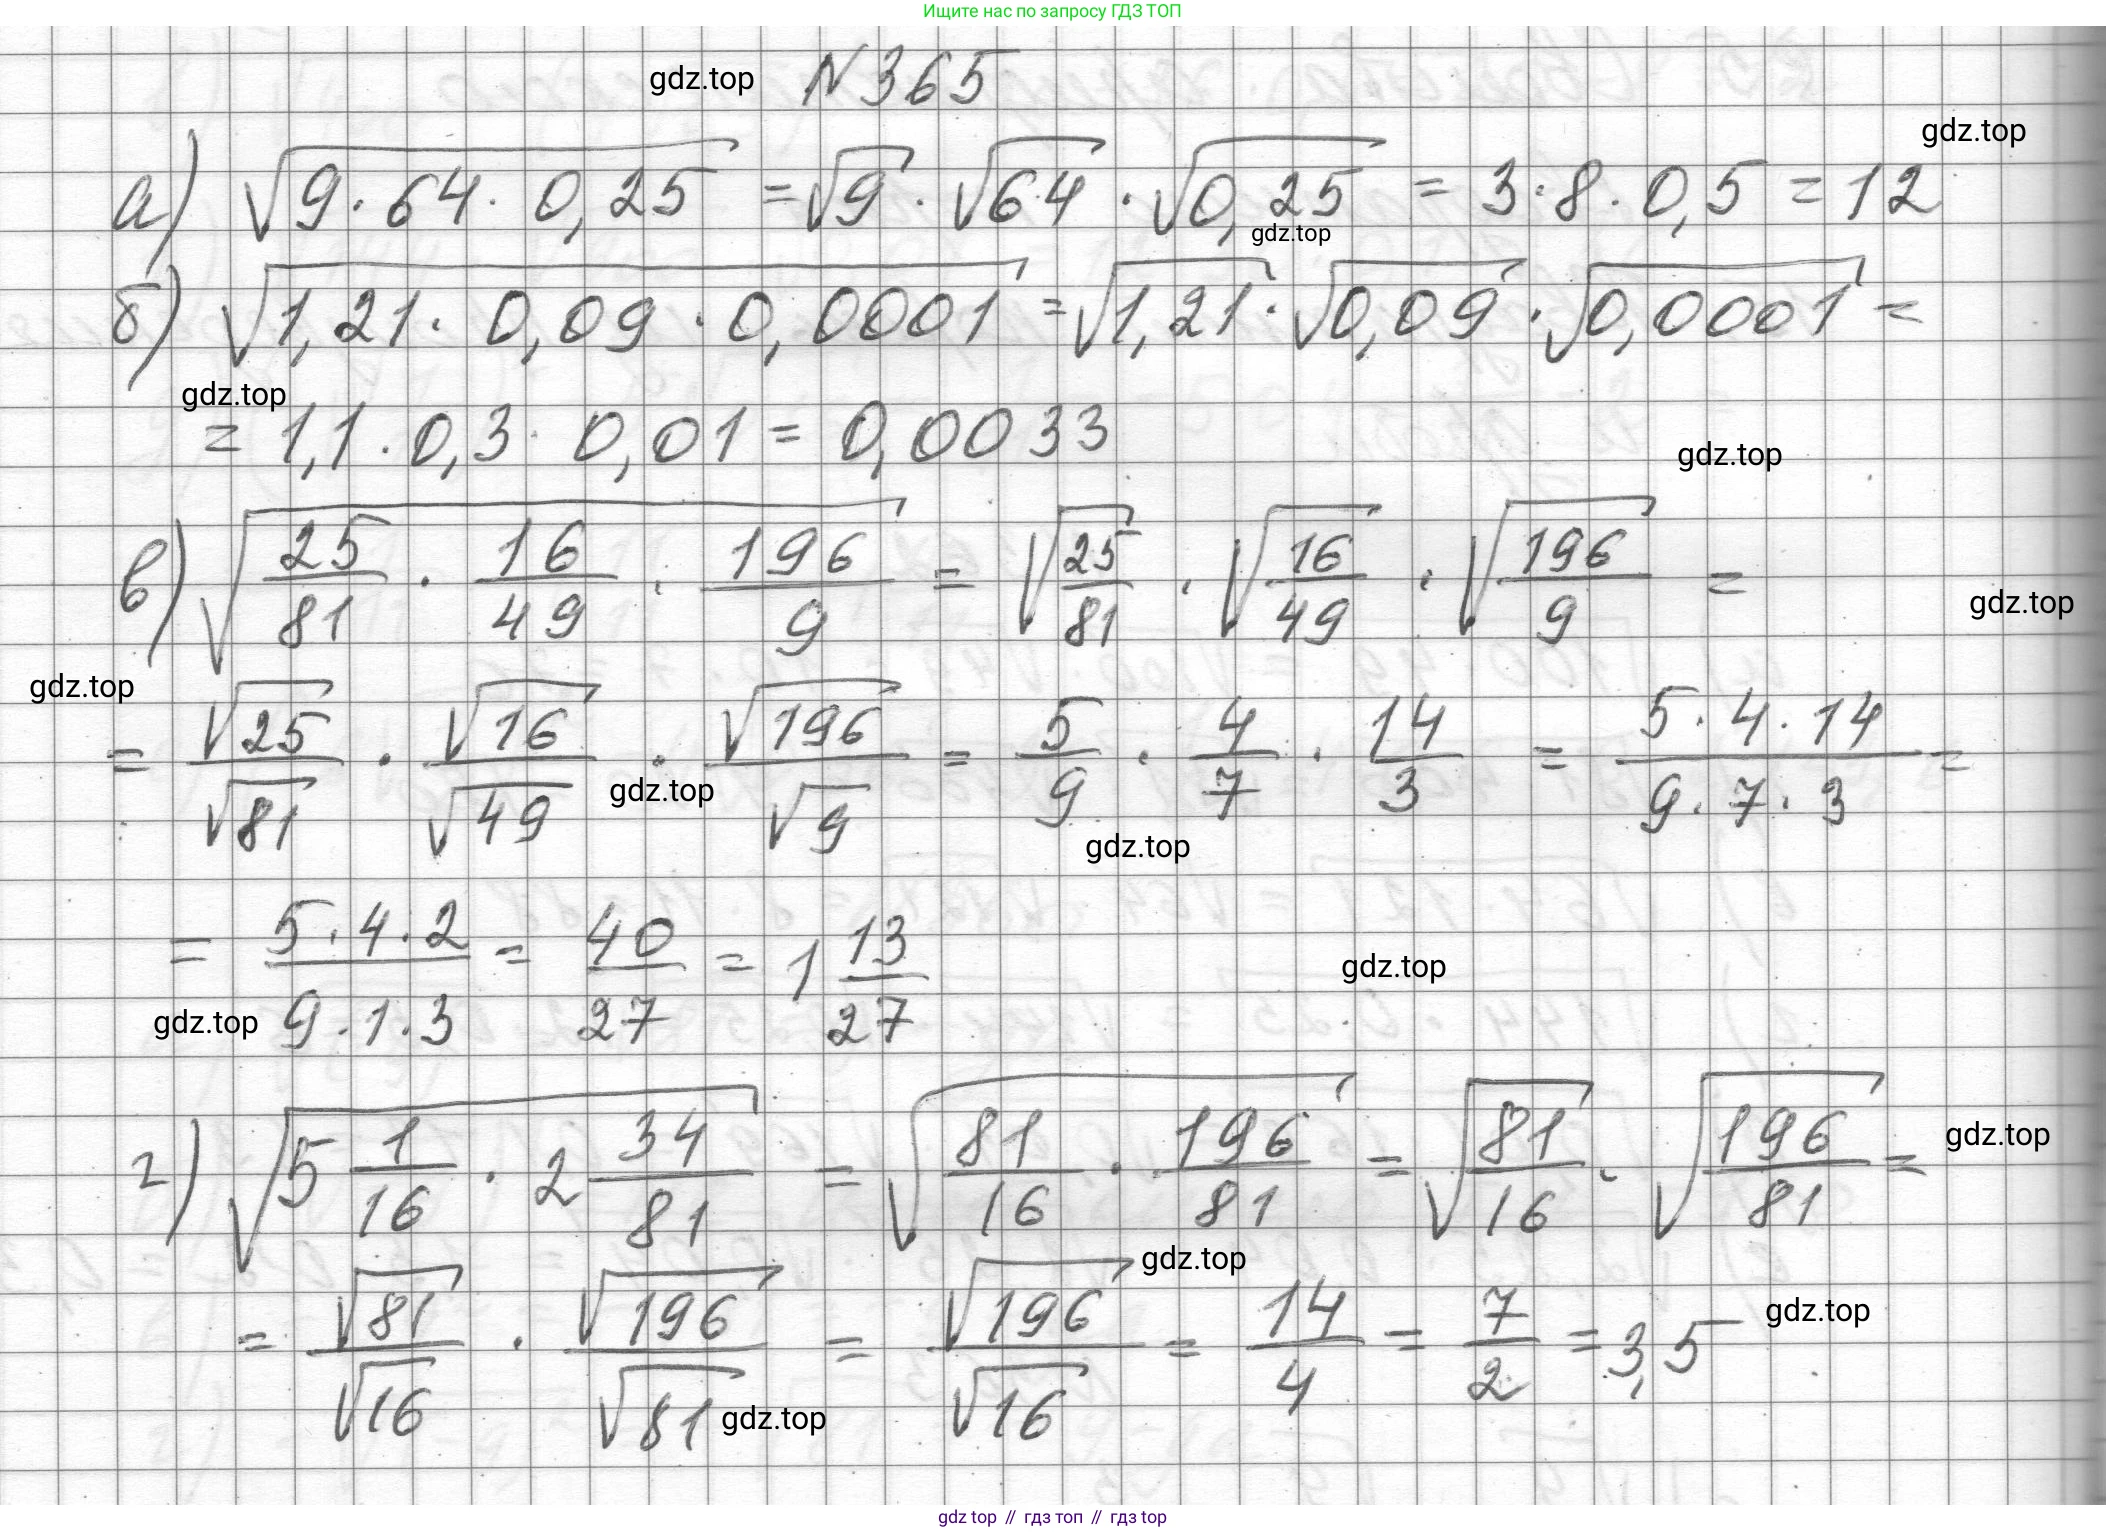 Ищите нас по запросу ГДЗ ТОП
gdz.top N 365
gdz.top
а) √(9 · 64 · 0,25) = √9 · √64 · √0,25 = 3 · 8 · 0,5 = 12
gdz.top
б) √(1,21 · 0,09 · 0,0001) = √1,21 · √0,09 · √0,0001 =
gdz.top
= 1,1 · 0,3 · 0,01 = 0,0033
gdz.top
в) √(25/81 · 16/49 · 196/9) = √(25/81) · √(16/49) · √(196/9) =
gdz.top
gdz.top
= √25/√81 · √16/√49 · √196/√9 = 5/9 · 4/7 · 14/3 = (5 · 4 · 14)/(9 · 7 · 3) =
gdz.top
gdz.top
= (5 · 4 · 2)/(9 · 1 · 3) = 40/27 = 1 13/27
gdz.top
gdz.top
г) √(5 1/16 · 2 34/81) = √(81/16 · 196/81) = √(81/16) · √(196/81) =
gdz.top
gdz.top
= √81/√16 · √196/√81 = √196/√16 = 14/4 = 7/2 = 3,5
gdz.top
gdz.top
gdz top // гдз топ // гдз top